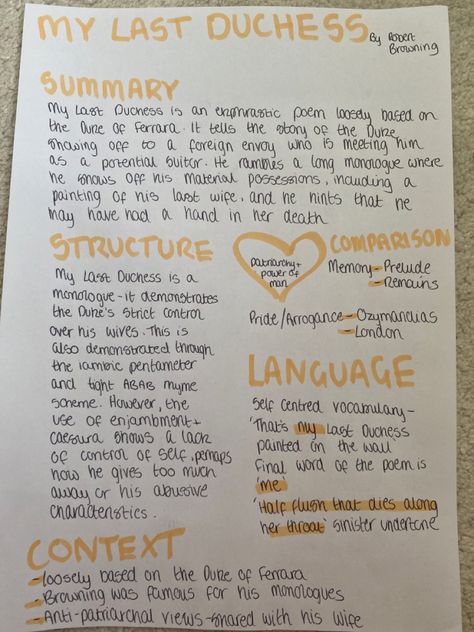 MY LAST DUCHESS
By Robert
Browning
SUMMARY
My Last Duchess is an ekphrastic poem loosely based on
the Duke of Ferrara. It tells the story of the Duke
showing off to a foreign envoy who is meeting him
as a potential suitor. He rambles a long monologue where
he shows off his material possessions, including a
painting of his last wife, and he hints that he
may have had a hand in her death
STRUCTURE
My Last Duchess is a
monologue-it demonstrates
the Duke's strict control
over his wives. This is
also demonstrated through
the iambic pentameter
and tight ABAB rhyme
scheme. However, the
use of enjambment+
caesura shows a lack
of control of self, perhaps
how he gives too much
away or his abusive
characteristics.
patriarchy+
power of
man
COMPARISON
Memory-Prelude
-Remains
Pride/Arrogance-Ozymandias
-London
LANGUAGE
Self centred vocabulary-
'That's my Last Duchess
painted on the wall
Final word of the poem is
'me'
'Half flush that dies along
her throat' sinister undertone
CONTEXT
-loosely based on the Duke of Ferrara
-Browning was famous for his monologues
-Anti-patriarchal views-shared with his wife